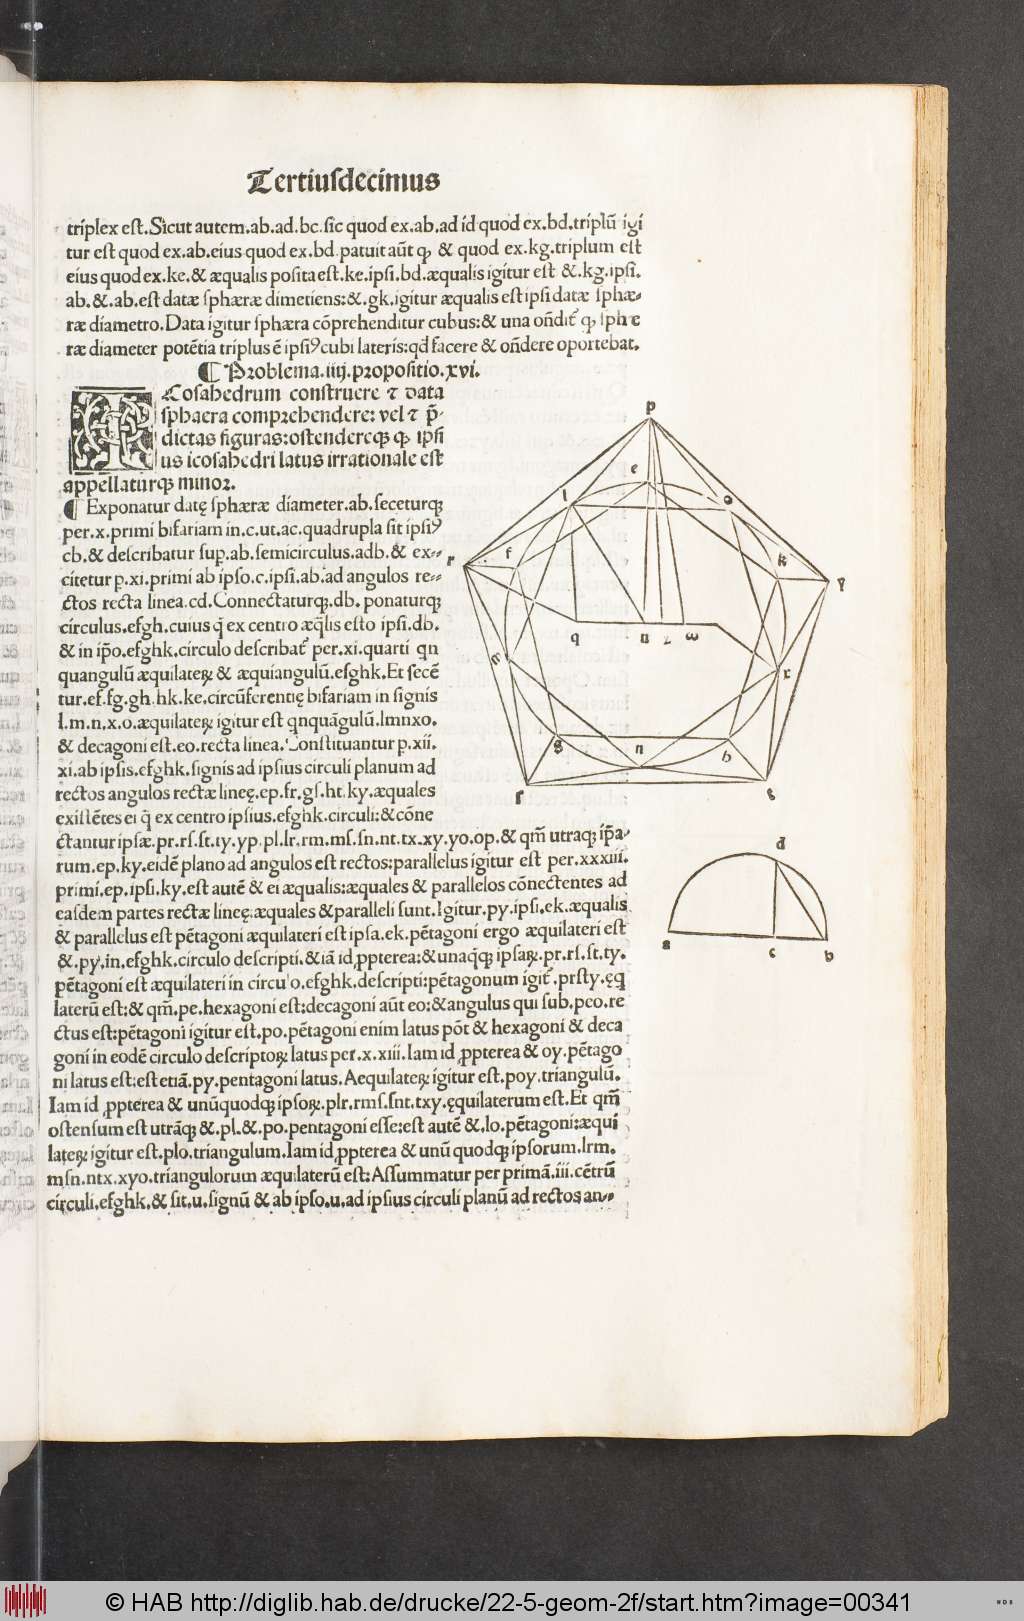 Tertiusdecimus
triplex est. Sicut autem.ab.ad.bc.sic quod ex.ab.ad id quod ex.bd.triplũ igi
tur est quod ex.ab.eius quod ex.bd.patuit aũt ꝙ & quod ex.kg.triplum est
eius quod ex.ke.& æqualis posita est.ke.ipsi.bd.æqualis igitur est &.kg.ipsi.
ab.&.ab.est datæ sphæræ dimetiens:&.gk.igitur æqualis est ipsi datæ sphæ-
ræ diametro.Data igitur sphæra cõprehenditur cubus:& una oñdit̃ ꝙ sphæ
ræ diameter potẽtia triplus ẽ ipsiꝰ cubi lateris:qd̃ facere & oñdere oportebat.
¶ Problema.iiij.propositio.xvi.
ICosahedrum construere ⁊ data
sphaera comprehendere: vel ⁊ p̃-
dictas figuras:ostendereqꝫ ꝙ ipsi
us icosahedri latus irrationale est
appellaturqꝫ minor.
¶ Exponatur datę sphæræ diameter.ab.seceturqꝫ
per.x.primi bifariam in.c.ut.ac.quadrupla sit ipsiꝰ
cb.& describatur sup.ab.semicirculus.adb.& ex-
citetur p.xi.primi ab ipso.c.ipsi.ab.ad angulos re-
ctos recta linea.cd.Connectaturqꝫ.db. ponaturqꝫ
circulus.efgh.cuius q̃ ex centro æq̃lis esto ipsi.db.
& in ip̃o.efghk.circulo describat̃ per.xi.quarti qn
quangulũ æquilateꝝ & æquiangulũ.efghk.Et secẽ
tur.ef.fg.gh.hk.ke.circũferentię bifariam in signis
l.m.n.x.o.æquilateꝝ igitur est qnquãgulũ.lmnxo.
& decagoni est.eo.recta linea.Constituantur p.xii.
xi.ab ipsis.efghk.signis ad ipsius circuli planum ad
rectos angulos rectæ lineę.ep.fr.gs.ht.ky.æquales
existẽtes ei q̃ ex centro ipsius.efghk.circuli:& cõne
ctantur ipsæ.pr.rs.st.ty.yp.pl.lr.rm.ms.sn.nt.tx.xy.yo.op.& qm̃ utraqꝫ ip̃a-
rum.ep.ky.eidẽ plano ad angulos est rectos:parallelus igitur est per.xxxiii.
primi.ep.ipsi.ky.est autẽ & ei æqualis:æquales & parallelos cõnectentes ad
easdem partes rectæ lineę.æquales & paralleli sunt.Igitur.py.ipsi.ek.æqualis
& parallelus est pẽtagoni æquilateri est ipsa.ek.pẽtagoni ergo æquilateri est
&.py.in.efghk.circulo descripti.& iã id ꝓpterea:& unaq̃qꝫ ipsaꝝ.pr.rs.st.ty.
pẽtagoni est æquilateri in circulo.efghk.descripti:pẽtagonum igit̃.prsty.ęq
laterũ est:& qm̃.pe.hexagoni est:decagoni aũt eo:& angulus qui sub.peo.re
ctus est:pẽtagoni igitur est.po.pẽtagoni enim latus põt & hexagoni & deca
goni in eodẽ circulo descriptoꝝ latus per.x.xiii.Iam id ꝓpterea & oy.pẽtago
ni latus est:est etiã.py.pentagoni latus.Aequilateꝝ igitur est.poy.triangulũ.
Iam id ꝓpterea & unũquodqꝫ ipsoꝝ.plr.rms.snt.txy.ęquilaterum est.Et qm̃
ostensum est utrãqꝫ &.pl.&.po.pentagoni esse:est autẽ &.lo.pẽtagoni:æqui
lateꝝ igitur est.plo.triangulum.Iam id ꝓpterea & unũ quodqꝫ ipsorum.lrm.
msn.ntx.xyo.triangulorum æquilaterũ est:Assummatur per primã.iii.cẽtrũ
circuli.efghk.& sit.u.signũ & ab ipso.u.ad ipsius circuli planũ ad rectos an-
p
e
l
o
r
f
k
y
q
u
z
ω
m
x
g
n
h
s
t
d
a
c
b
© HAB http://diglib.hab.de/drucke/22-5-geom-2f/start.htm?image=00341